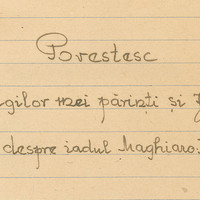 Povestesc
gilor mei părinți și
despre iadul Maghiaro